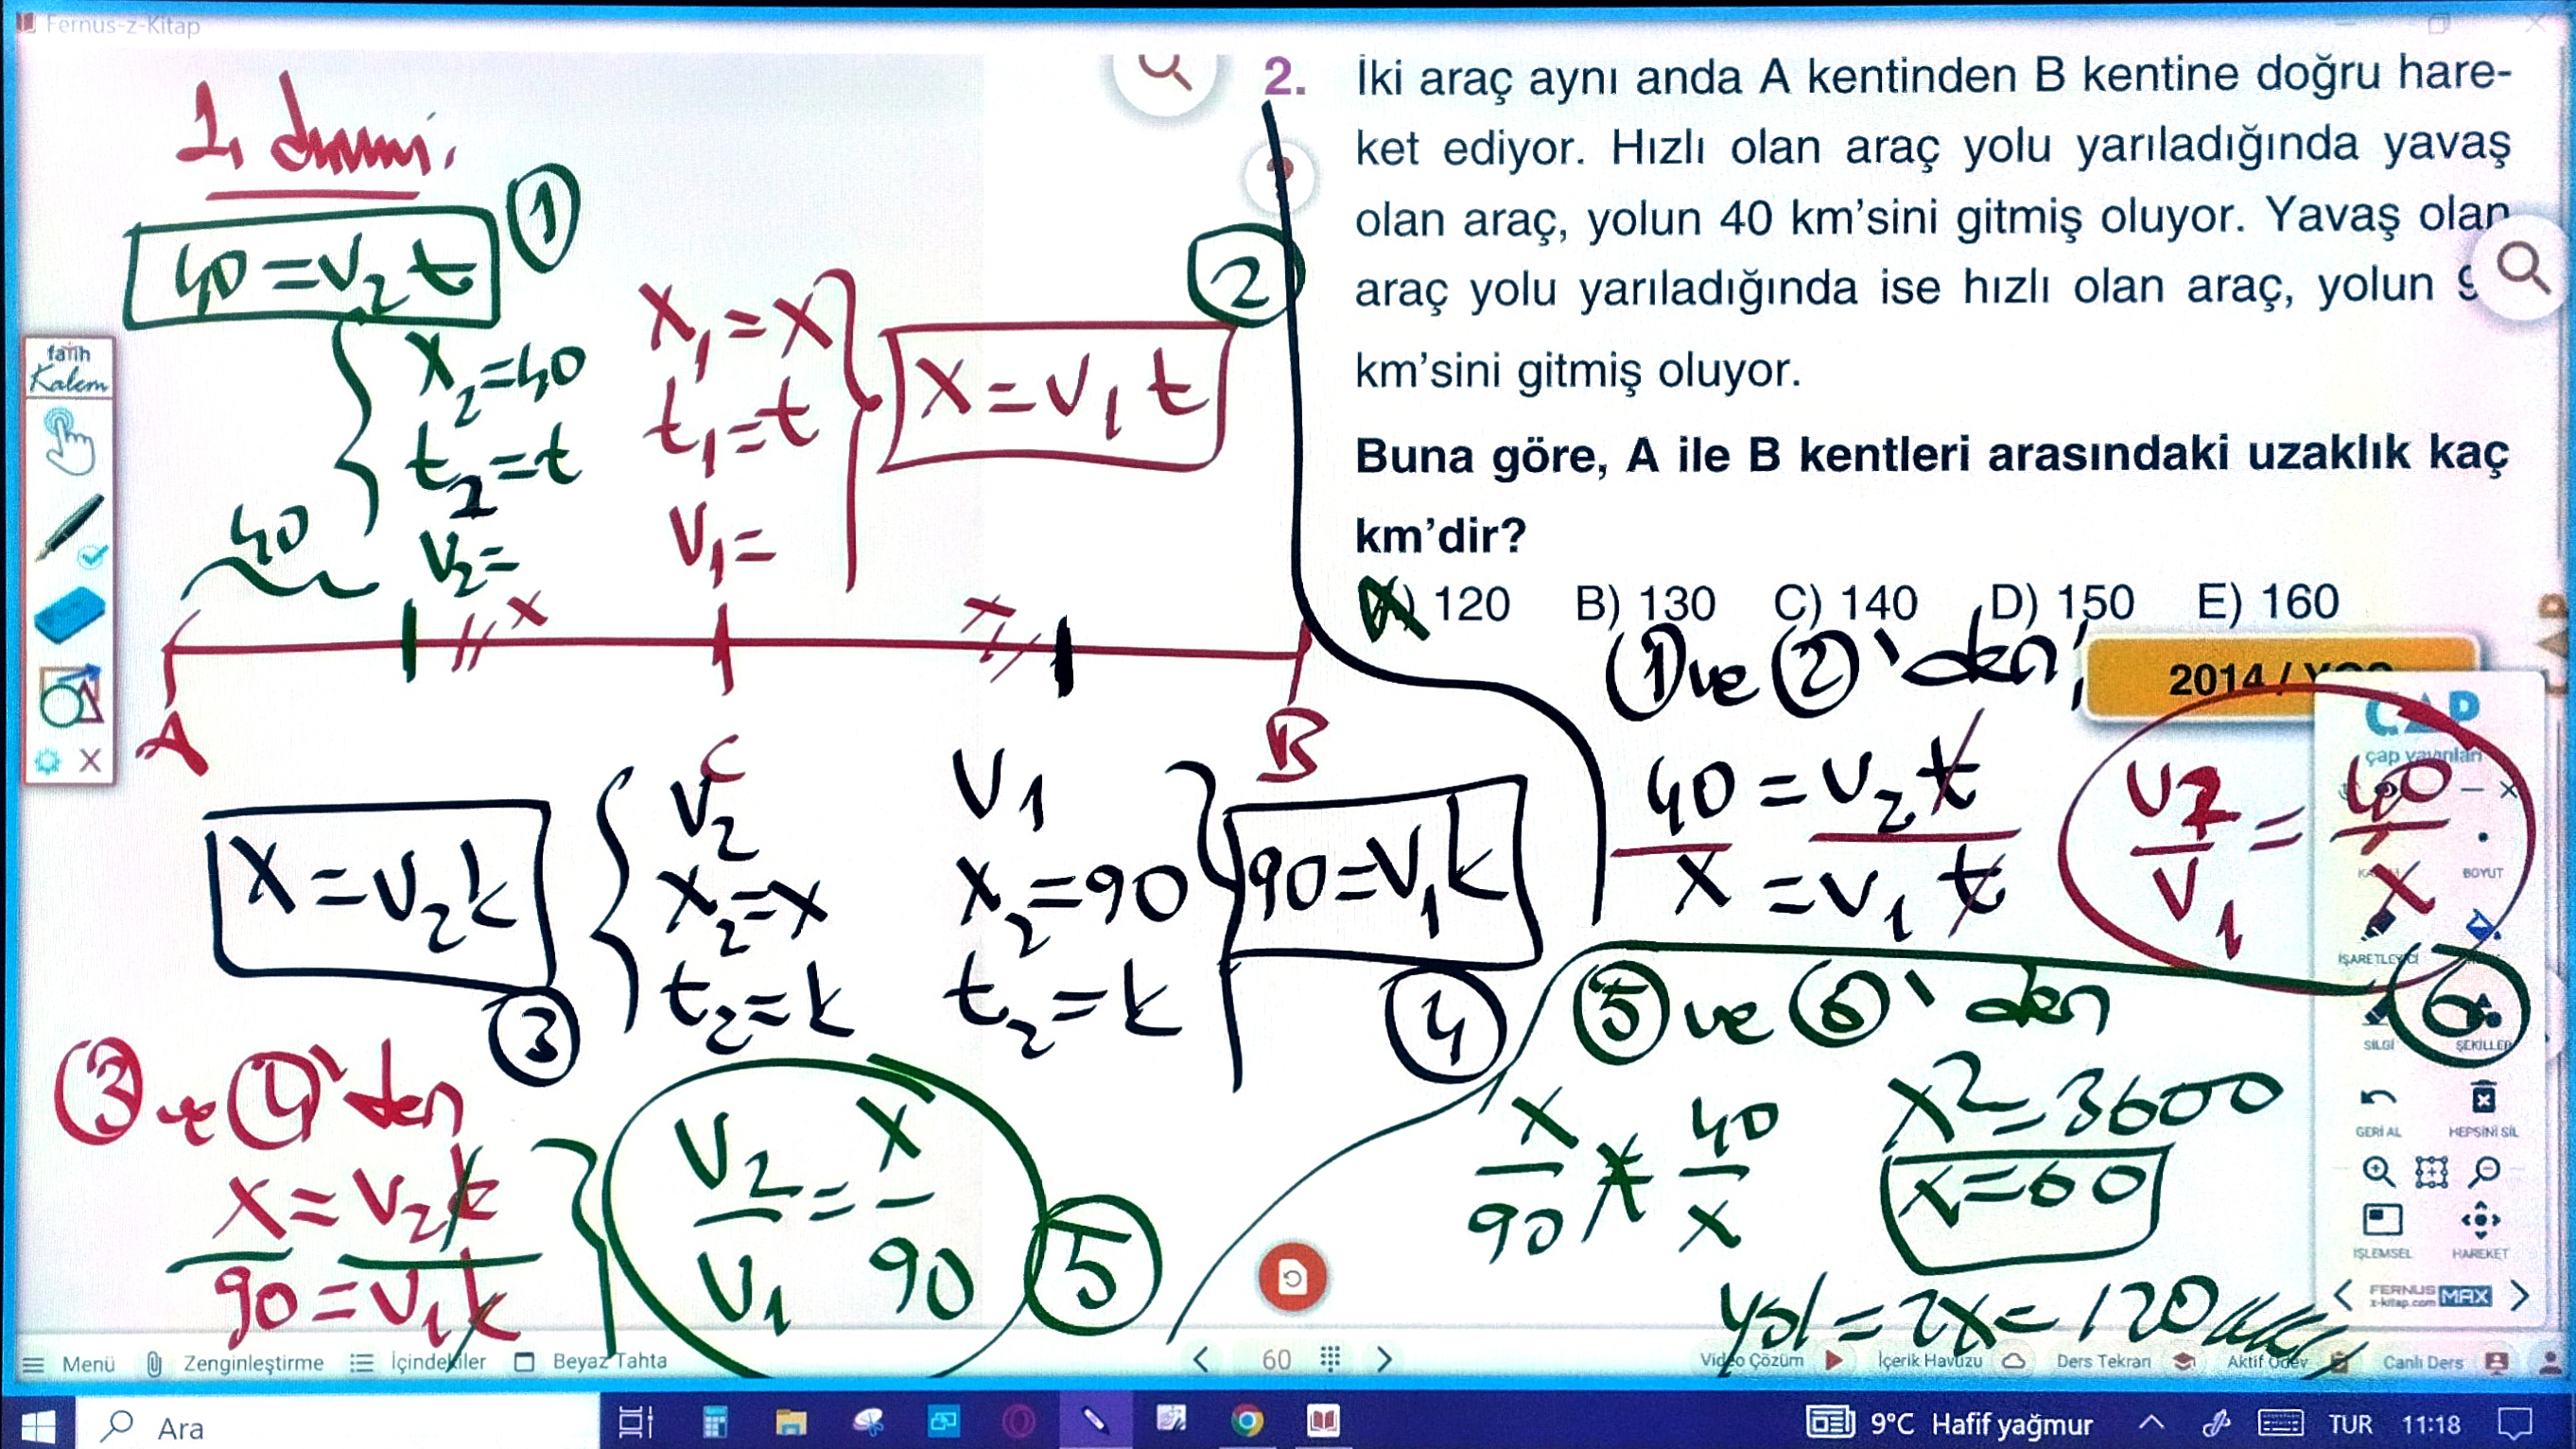 Fernus-z-Kitap
2. İki araç aynı anda A kentinden B kentine doğru hare-
ket ediyor. Hızlı olan araç yolu yarıladığında yavaş
olan araç, yolun 40 km'sini gitmiş oluyor. Yavaş olan
araç yolu yarıladığında ise hızlı olan araç, yolun
km'sini gitmiş oluyor.
Buna göre, A ile B kentleri arasındaki uzaklık kaç
km'dir?
A) 120 B) 130 C) 140 D) 150 E) 160
2014 /
ÇAP
çap yayınları
1.
40 = V2 t
1
X2 = 40
t2 = t
V2 =
X1 = X
t1 = t
V1 =
X = V1 t
2
40
x
x
A
C
B
X = V2 k
3
V2
X2 = X
t2 = k
V1
X2 = 90
t2 = k
90 = V1 k
4
3 ve 4'den
X = V2 k
90 = V1 k
V2 / V1 = X / 90
5
1 ve 2'den
40 = V2 t
X = V1 t
V2 / V1 = 40 / X
6
5 ve 6'den
X / 90 = 40 / X
X² = 3600
X = 60
yol = 2X = 120
fatih
Kalem
BOYUT
İŞARETLEYİCİ
SİLGİ ŞEKİLLER
GERİ AL HEPSİNİ SİL
İŞLEMSEL HAREKET
FERNUS
z-kitap.com MAX
Menü Zenginleştirme İçindekiler Beyaz Tahta 60 Video Çözüm İçerik Havuzu Ders Tekrarı Aktif Ödev Canlı Ders
Ara 9°C Hafif yağmur TUR 11:18